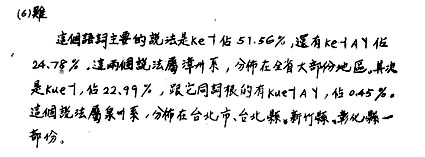 (6)雞
這個語詞主要的說法是ke˥佔51.56%,還有ke˧A˥佔
24.78%.這兩個說法屬漳州系,分佈在全省大部份地區.其次
是kue˥,佔22.99%,跟它同詞根的有kue˧A˥,佔0.45%.
這個說法屬泉州系,分佈在台北市、台北縣、新竹縣、彰化縣一
部份。